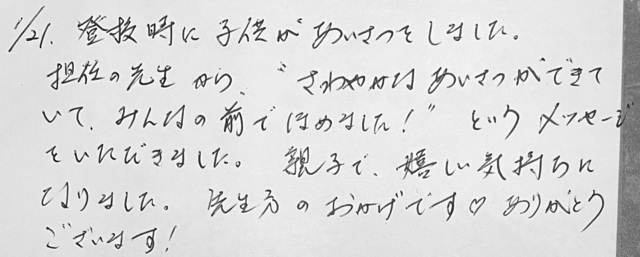 1/21. 登校時に子供があいさつをしました。
担任の先生から、“さわやかなあいさつができて
いて、みんなの前でほめました！”というメッセージ
をいただきました。親子で、嬉しい気持ちに
なりました。先生方のおかげです♡ ありがとう
ございます！